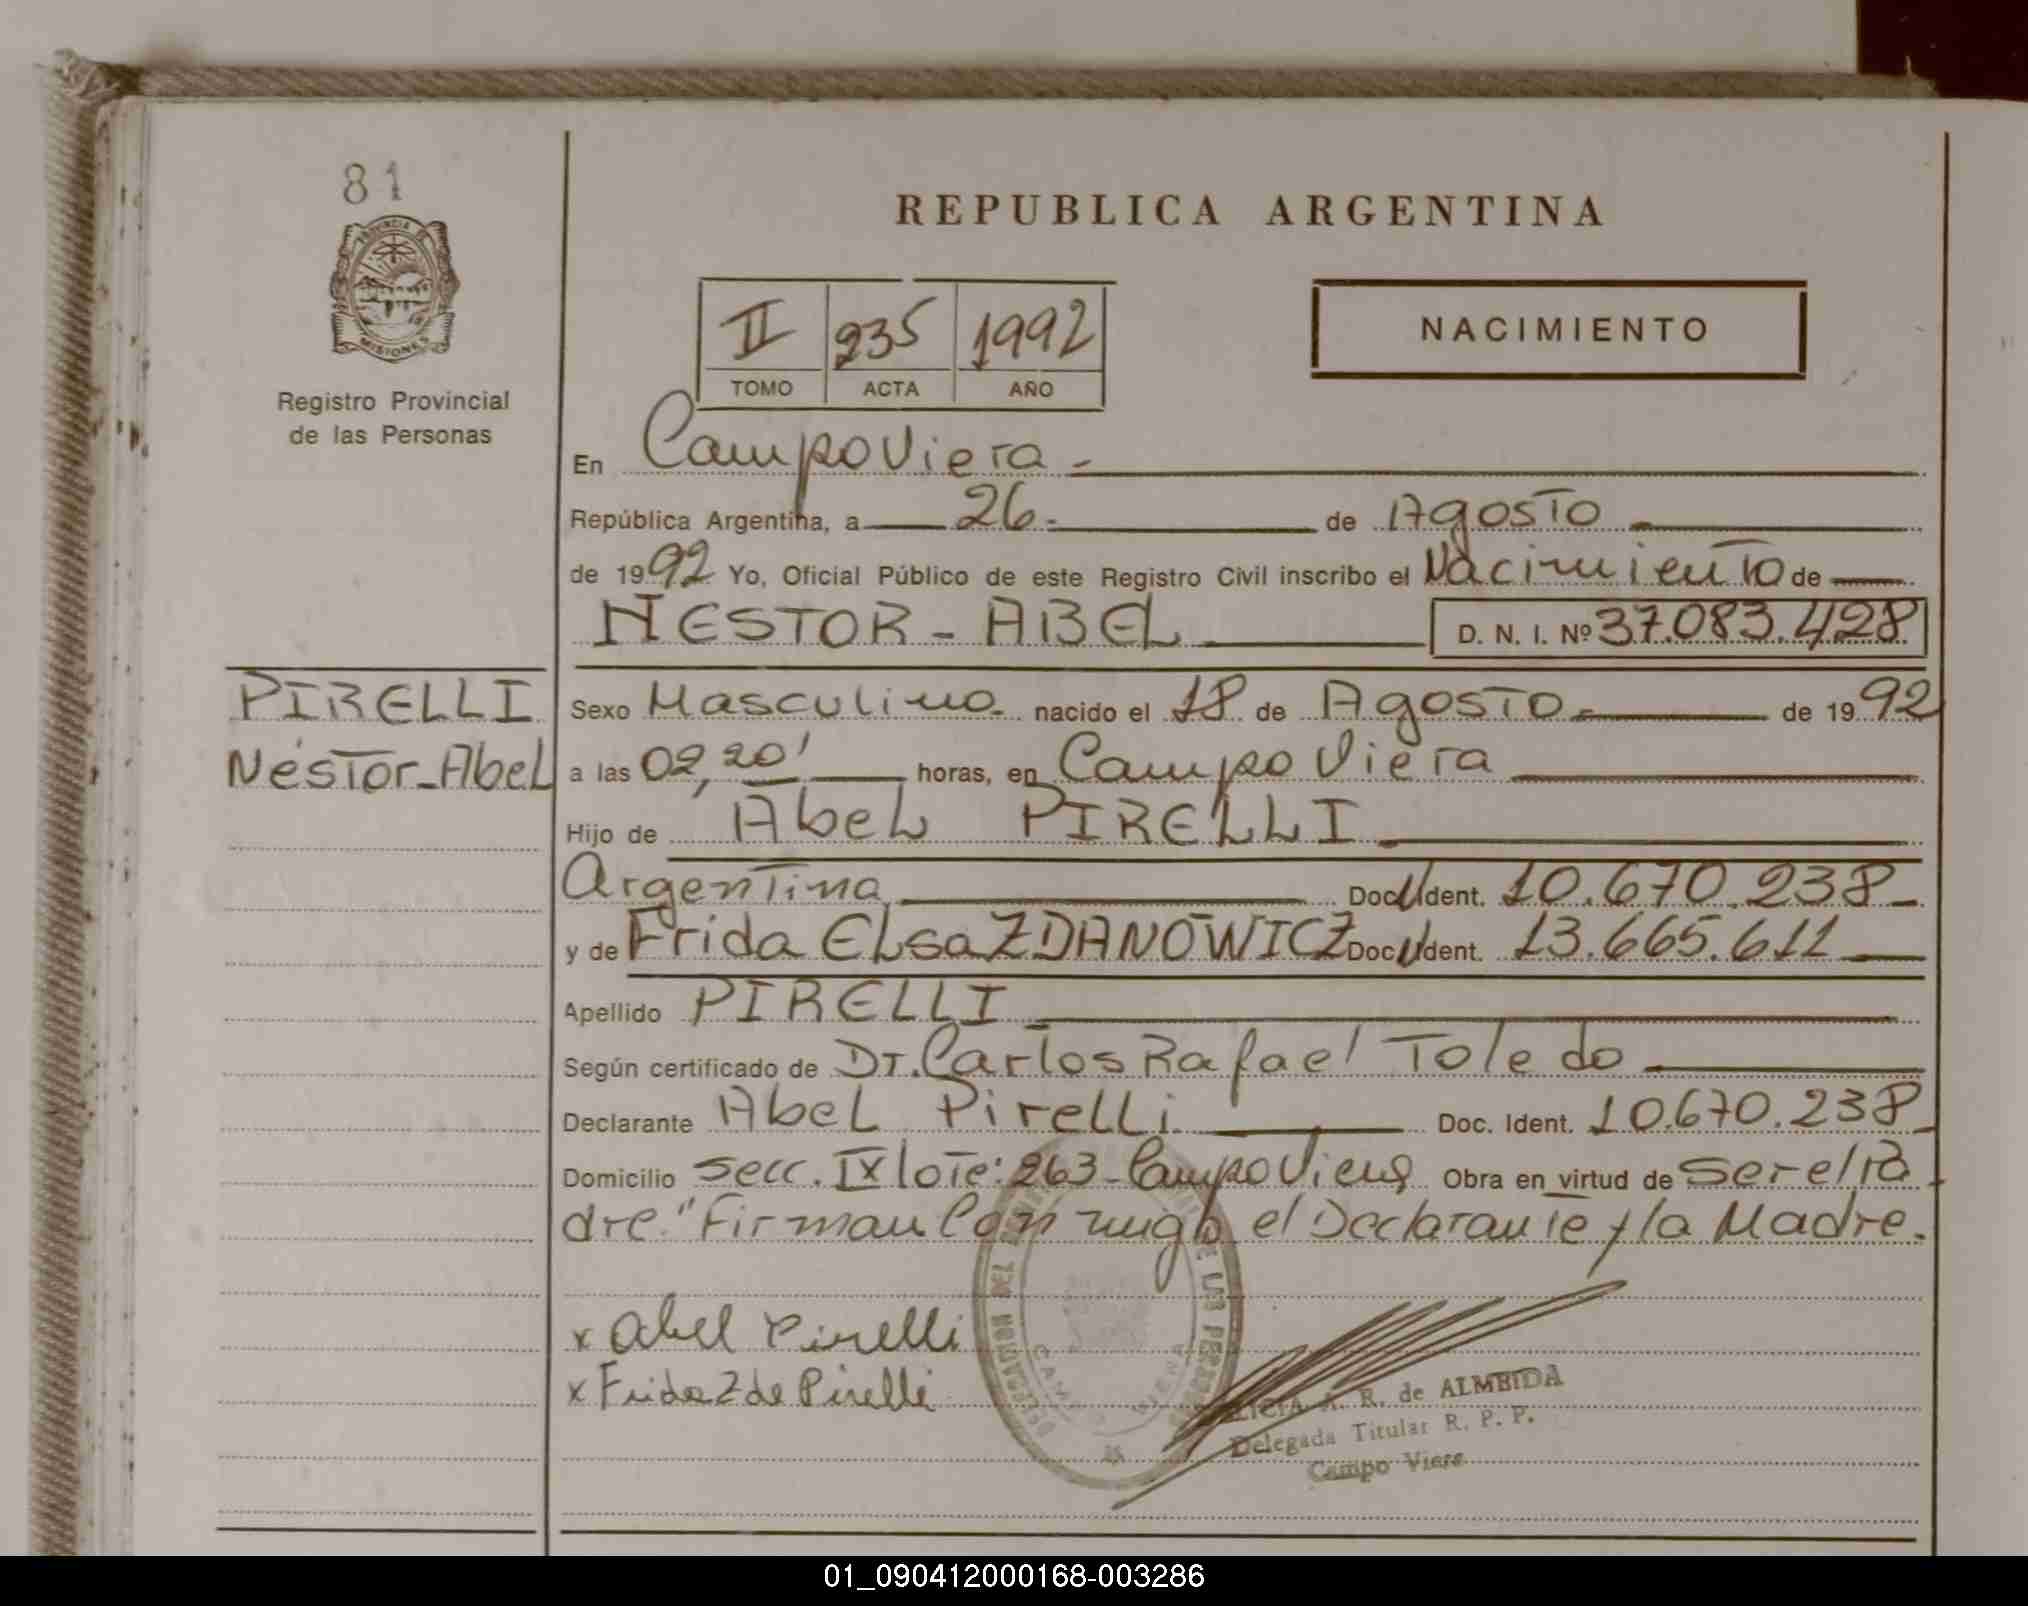 81
PROVINCIA DE
MISIONES
Registro Provincial
de las Personas
REPUBLICA ARGENTINA
II 235 1992
TOMO ACTA AÑO
NACIMIENTO
En Campo Viera -
República Argentina, a 26- de Agosto
de 1992 Yo, Oficial Público de este Registro Civil inscribo el Nacimiento de
NESTOR - ABEL D. N. I. Nº 37.083.428
PIRELLI
Néstor-Abel
Sexo Masculino nacido el 18 de Agosto de 1992
a las 02,20' horas, en Campo Viera
Hijo de Abel PIRELLI
Argentina Doc. Ident. 10.670.238
y de Frida Elsa ZDANOWICZ Doc. Ident. 13.665.611
Apellido PIRELLI
Según certificado de Dr. Carlos Rafael Toledo
Declarante Abel Pirelli Doc. Ident. 10.670.238
Domicilio Secc. IX lote: 263-Campo Viera Obra en virtud de Ser el Pa
dre." Firman Conmigo el Declarante y la Madre.
x Abel Pirelli
x Frida Z de Pirelli
CAMPO VIERA
A. R. de ALMEIDA
Delegada Titular R. P. P.
Campo Viera
01_090412000168-003286